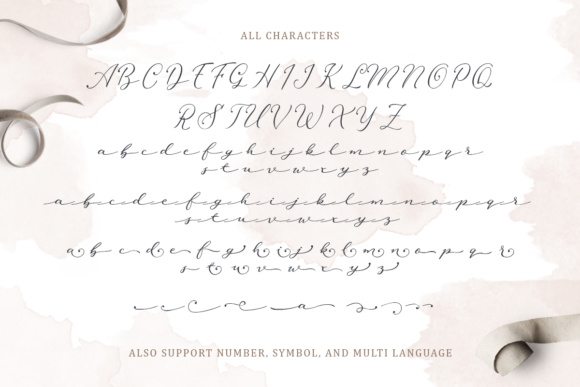 ALL CHARACTERS
A B C D E F G H I J K L M N O P Q
R S T U V W X Y Z
a b c d e f g h i j k l m n o p q r
s t u v w x y z
a b c d e f g h i j k l m n o p q r
s t u v w x y z
a b c d e f g h i j k l m n o p q r
s t u v w x y z
ALSO SUPPORT NUMBER, SYMBOL, AND MULTI LANGUAGE